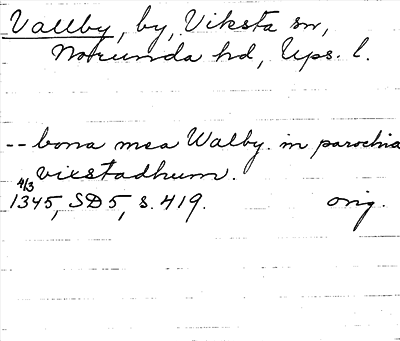 Vallby, by, Viksta sn,
Norunda hd, Ups. l.
-- bona mea Walby. in parochia
vixstadhum.
4/3
1345, SD5, s. 419. orig.